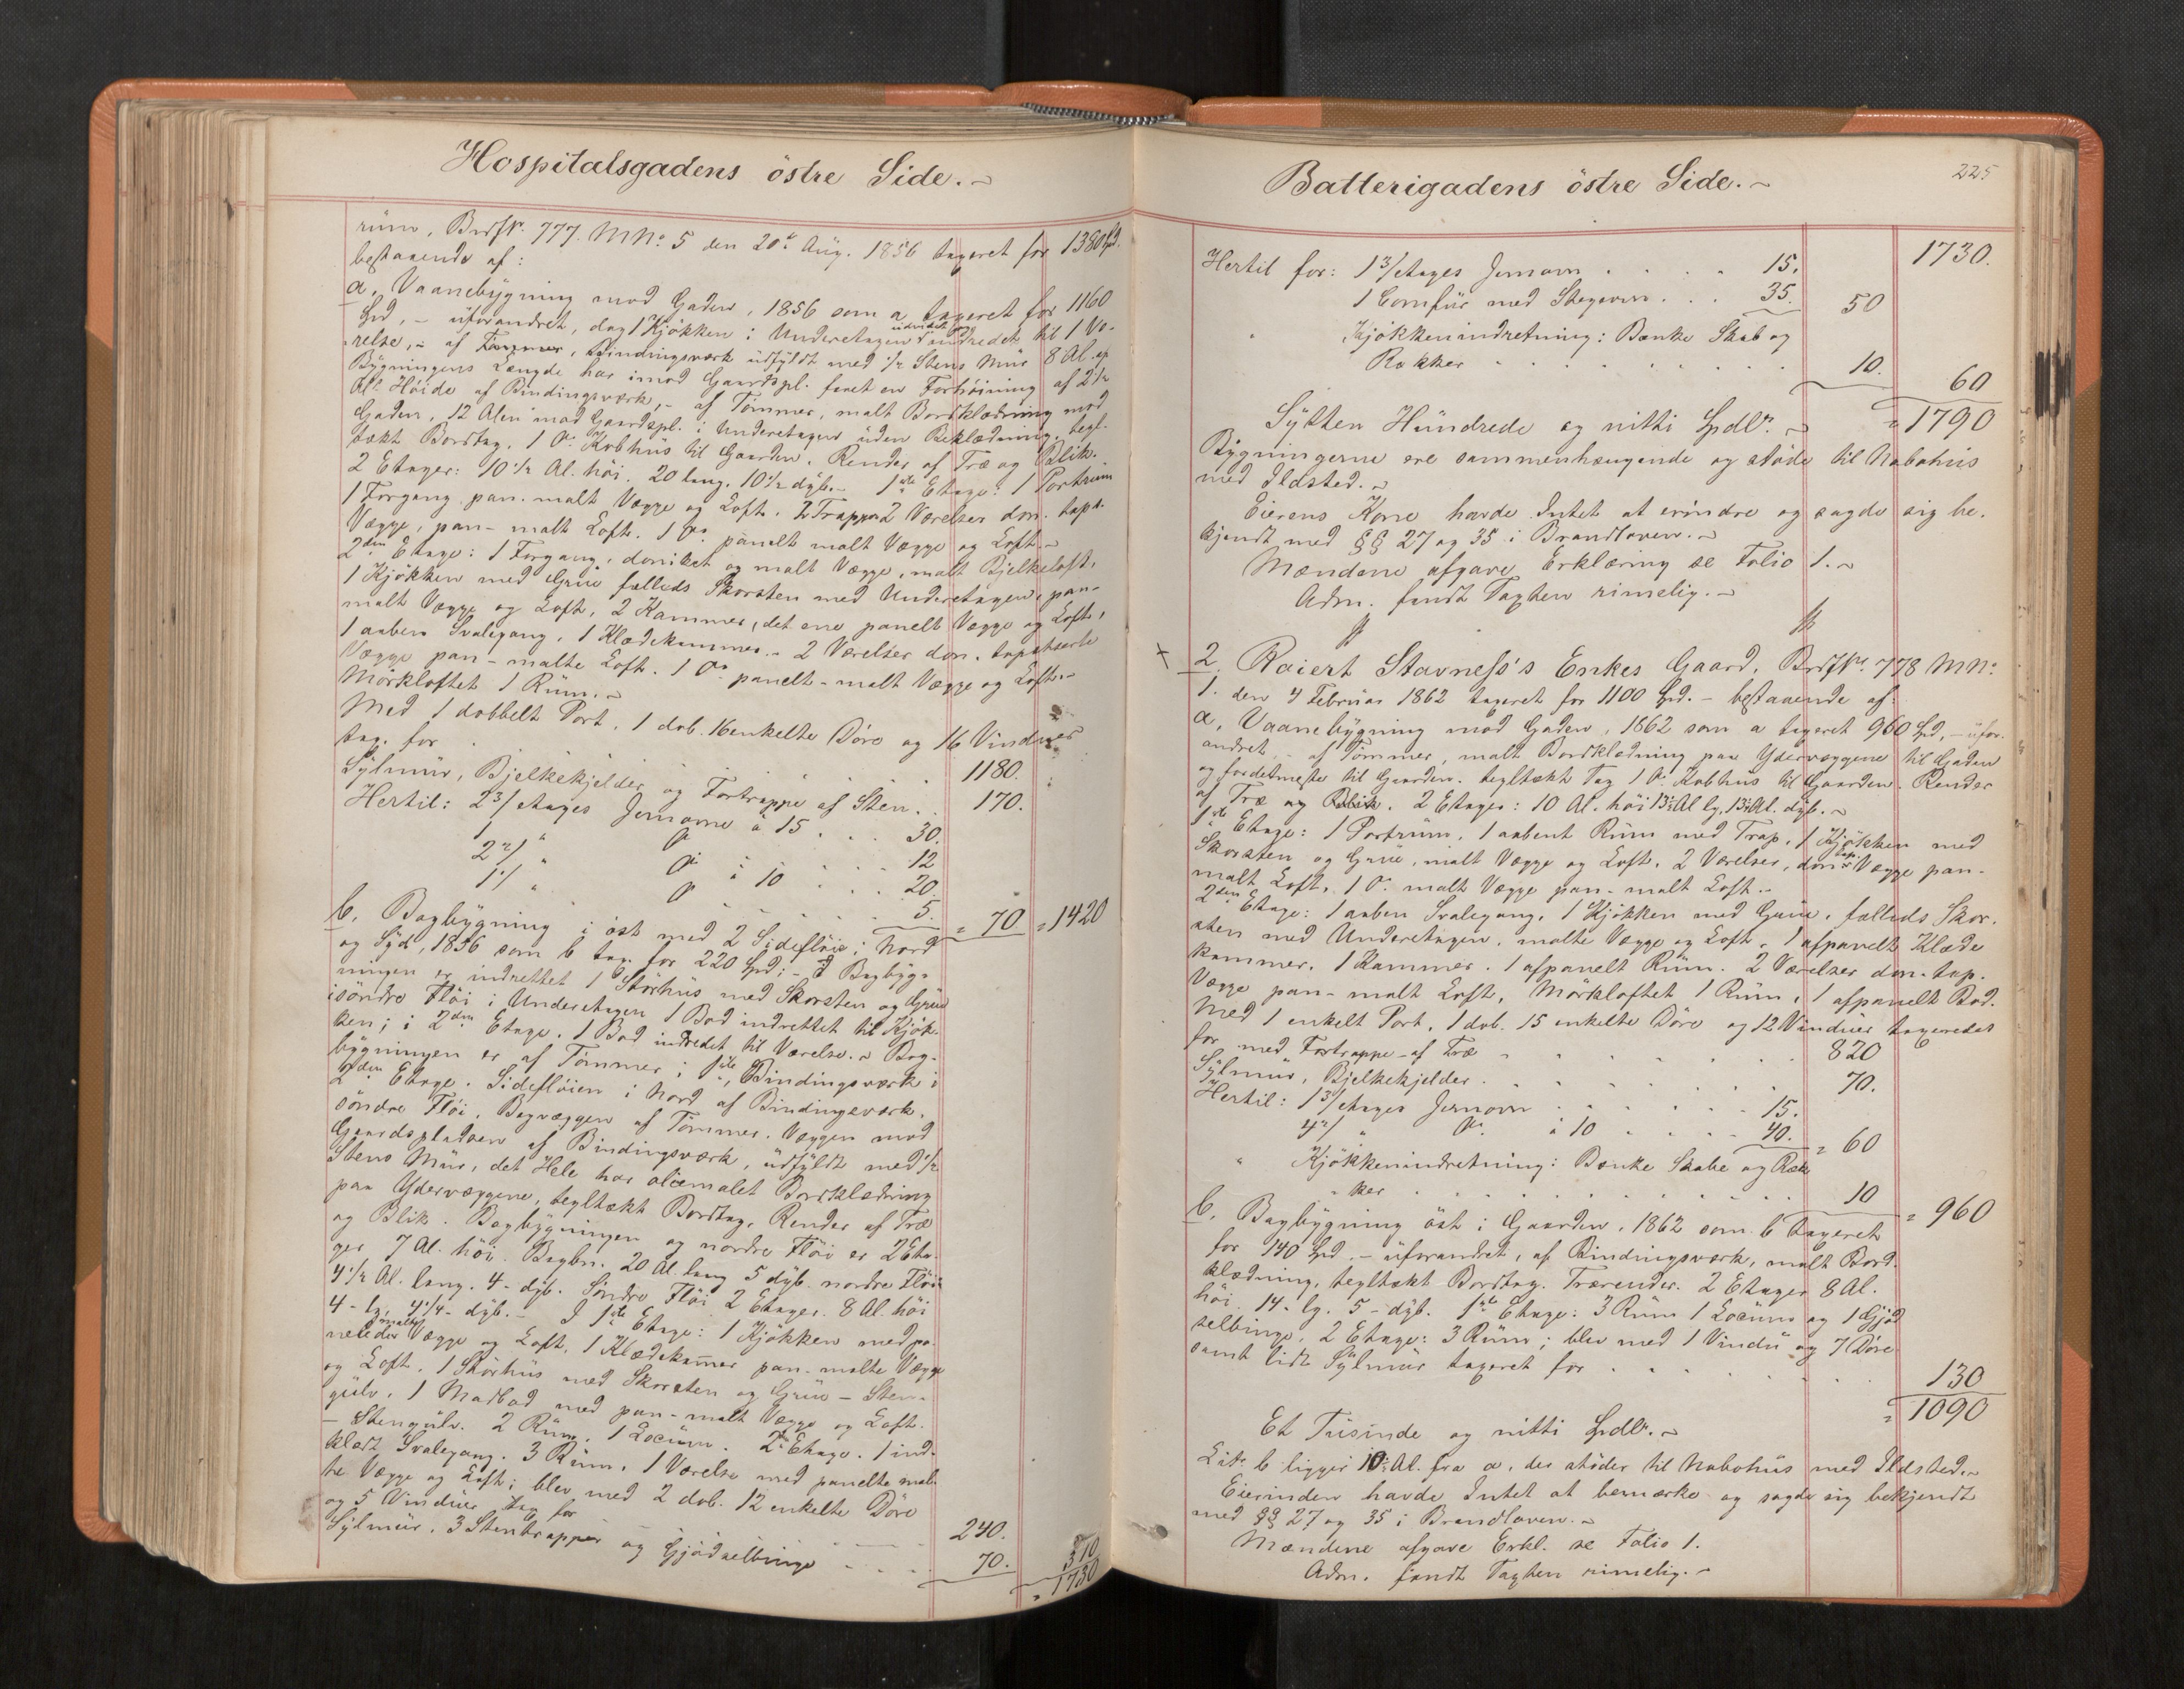 Hospitalsgadens östre Side.
rüm, BrdfN: 777. MNo: 5 den 20de Aüg. 1856 taxeret for 1380 Spd.
bestaaende af:
a, Vaanebÿgning mod Gaden, 1856 som a taxeret for 1160
Spd, - üforandret, dog 1 Kjökken i Underetagen üdvidet og indredet til 1 Væ-
relse, - af Tömmer, Bindingsværk üdfÿldt med 1/2 Stens Mür 8 Al. af
Bÿgningens Længde har imod Gaardspl. faaet en Forhöining af 2 1/2
Al: Höide af Bindingsværk, - af Tömmer, malt Bordklædning mod
Gaden, 12 Alen mod Gaardspl. i Underetagen üden Beklædning, tegl-
tækt Bordtag, 1 Do Kobhüs til Gaarden. Render af Træ og Blik.
2 Etager: 10 1/2 Al. höi. 20 lang. 10 1/2 dÿb. - 1ste Etage: 1 Portrüm
1 Forgang pan. malt Vægge og Loft. 2 Trapper 2 Værelser don. tapt.
Vægge, pan- malt Loft. 1 Do panelt malt Vægge og Loft. -
2den Etage: 1 Forgang, doniket og malt Vægge, malt Bjelkeloft,
1 Kjökken med Grüe fælleds Skorsten med Underetagen, pan-
malt Vægge og Loft, 2 Kammer, det ene panelt Vægge og Loft,
1 aaben Svalegang, 1 Klædekammer. - 2 Værelser don. tapetserte
Vægge pan- malte Loft. 1 Do panelt- malt Vægge og Loft. -
Mörkloftet 1 Rüm. -
Med 1 dobbelt Port, 1 dob. 16 enkelte Döre og 16 Vindüer
tax. for . . . 1180.
Sÿlmür, Bjelkekjelder og Fortrappe af Sten . . 170.
Hertil: 2 3/ Etages Jernovne à 15 . . . 30.
1 " Do . . . 12
2 2/ " Do à 10 . . . 20.
1 1/ " Do . . . 5. = 70 = 1420
b, Bagbÿgning i öst med 2 Sideflöie i Nord
og Sÿd, 1856 som b tax. for 220 Spd; - I Bagbÿg-
ningen er indrettet 1 Skörhüs med Skorsten og Grüe
i söndre Flöi i Underetagen 1 Bod indrettet til Kjök-
ken; i 2den Etage. 1 Bod indredet til Værelse. - Bag-
bÿgningen er af Tömmer i 1ste, Bindingsværk i
2den Etage. Sideflöien i Nord af Bindingsværk.
söndre Flöi, Bagvæggen af Tömmer. Væggen mod
Gaardspladsen af Bindingsværk, üdfÿldt med 1/2
Stens Mür, det Hele har oliemalet Bordklædning
paa Ydervæggene, tegltækt Bordtag, Render af Træ
og Blik. Bagbÿgningen og nordre Flöi er 2 Eta-
ger 7 Al. höi. Bagbn. 20 Al. lang 5 dÿb. nordre Flöi
4 1/2 Al. lang. 4- dÿb. Söndre Flöi 2 Etager. 8 Al. höi
4- lg, 4 1/4- dÿb. - I 1ste Etage: 1 Kjökken med pa-
nelede malte Vægge og Loft, 1 Klædekammer pan- malte Vægge
og Loft. 1 Skörhüs med Skorsten og Grüe - Sten-
gülv. 1 Madbod med pan- malt Vægge og Loft.
- Stengülv. 2 Rüm, 1 Locüm. 2den Etage. 1 ind-
klædt Svalegang. 3 Rüm, 1 Værelse med panelte mal-
te Vægge og Loft; blev med 2 dob. 12 enkelte Döre
og 5 Vindüer tax for . . . 240.
Sÿlmür, 3 Stentrapper og Gjödselbinge . . . 70. 310
= 1730
Batterigadens östre Side.
225
1730.
Hertil for: 1 3/ Etages Jernovn . . . . 15.
1 Comfür med Stegeovn . . . 35. 50
" Kjökkenindretning: Bænke Skab og
Rækker . . . . . . . 10. 60
Sÿtten Hündrede og nitti Spdlr. = 1790
Bÿgningerne ere sammenhængende og stöde til Nabohüs
med Ildsted. -
Eierens Kone havde Intet at erindre og sagde sig be-
kjendt med §§ 27 og 35 i Brandloven. -
Mændene afgave Erklæring se Folio 1. -
Adm. fandt Taxten rimelig. -
× 2. Raiert Stavness's Enkes Gaard, BrdfNo. 778 MNo:
1. den 4 Februar 1862 taxeret for 1100 Spd. - bestaaende af:
a, Vaanebÿgning mod Gaden, 1862 som a taxeret 960 Spd, - üfor-
andret - af Tömmer, malt Bordklædning paa Ydervæggene til Gaden
og fordetmeste til Gaarden. tegltækt Tag 1 Do Kobhüs til Gaarden. Render
af Træ og Blik. 2 Etager: 10 Al. höi 13 1/2 Al lg, 13 1/2 Al. dÿb. -
1ste Etage: 1 Portrüm, 1 aabent Rüm med Trap, 1 Kjökken med
Skorsten og Grüe, malt Vægge og Loft, 2 Værelser, don. tap. Vægge pan-
malt Loft, 1 Do malt Vægge pan- malt Loft. -
2den Etage: 1 aaben Svalegang, 1 Kjökken med Grüe, fælleds Skor-
sten med Underetagen, malte Vægge og Loft, 1 afpanelt Klæde
kammer, 1 Kammer. 1 afpanelt Rüm. 2 Værelser don. tap.
Vægge pan- malt Loft, Mörkloftet 1 Rüm, 1 afpanelt Bod.
Med 1 enkelt Port, 1 dob. 15 enkelte Döre og 12 Vindüer taxeredes
for med Fortrappe af Træ . . . . . 820
Sÿlmür, Bjelkekjelder . . . . . . 70.
Hertil: 1 3/ Etages Jernovn . . . . . 15.
4 2/ " Do. à 10 . . . . 40. = 60
" Kjökkenindretning: Bænke Skabe og Ræk
- ker . . . . . . . . . 10 = 960
b, Bagbÿgning öst i Gaarden, 1862 som b taxeret
for 140 Spd. - üforandret, af Bindingsværk, malt Bord-
klædning, tegltækt Bordtag. Trærender. 2 Etager 8 Al.
höi. 14- lg. 5- dÿb. 1ste Etage: 3 Rüm 1 Locüm og 1 Gjöd
selbinge, 2 Etage: 3 Rüm; blev med 1 Vindü og 7 Döre
samt lidt Sÿlmür taxeret for . . . . . . 130
= 1090
Et Tüsinde og nitti Spdlr. -
Litr. b ligger 10 Al. fra a. der stöder til Nabohüs med Ildsted. -
Eierinden havde Intet at bemærke og sagde sig bekjendt
med §§ 27 og 35 i Brandloven. -
Mændene afgave Erkl. se Folio 1.
Adm. fandt Taxten rimelig. -